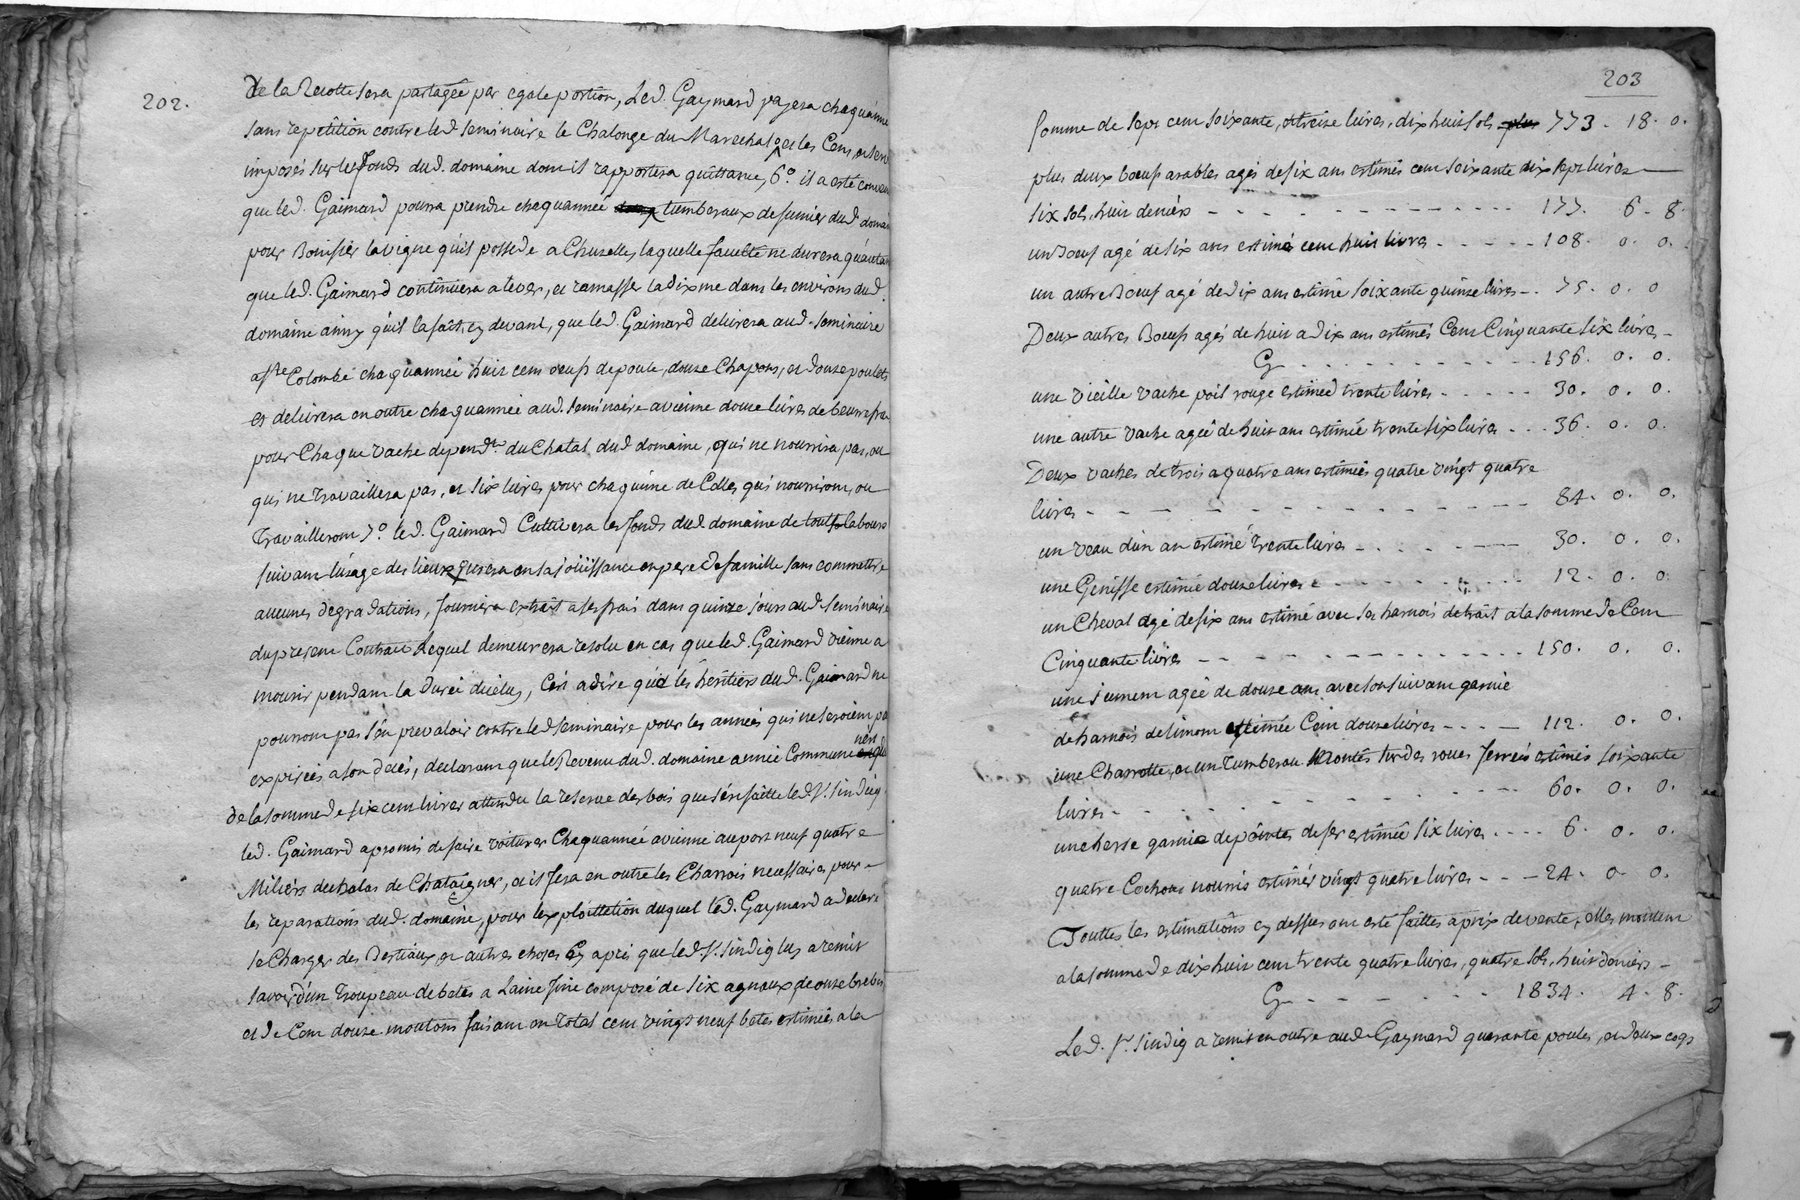 202.
de la Recotte sera partagée par egale portion, Led. Gaymard payera chaquannée
sans repetition contre led seminaire le Chalonge du Marechal, et les Cens, et servis
imposés sur les fonds dud. domaine dont il rapportera quittance, 6.° il a esté convenu
que led. Gaimard pourra prendre chaquannée tumberaux de fumier dud domaine
pour Bonifier la vigne qu'il possede a Chuzelles, laquelle faculté ne durera qu'autant
que led. Gaimard continuera a lever, et ramasser la dixme dans les environs dud.
domaine ainsy qu'il la fait cy devant, que led. Gaimard delivrera aud. seminaire
a Ste Colombe chaquannée huit cens oeufs de poule, douze Chapons, et douze poulets
et delivrera en outre chaquannée aud. seminaire a vienne douze livres de beurre frais
pour Chaque vache depend.te du Chatal dud domaine, qui ne nourrira pas, ou
qui ne travaillera pas, et six livres pour chaquune de Celles qui nourriront, ou
Travailleront 7.° led. Gaimard Cultivera les fonds dud domaine de touts labours
suivant lusage des lieux, usera en sa joüissance en pere de famille sans commettre
aucunes degradations, fournira extrait a ses frais dans quinze jours aud. seminaire
du present Contract lequel demeurera resolu en cas que led. Gaimard vienne a
mourir pendant la durée diceluy, Cest a dire que les heritiers dud. Gaimard ne
pourront pas s'en prevaloir contre led seminaire pour les années qui ne seroient pas
expirées a son decés, declarant que le Revenu dud. domaine année Commune n'est que
de la somme de six cent livres attendu la reserve des bois que s'est faitte led. Sr. sindicq
led. Gaimard a promis de faire voiturer Chaquannée a vienne au port neuf quatre
Miliers dechalas de Chataigner, et il fera en outre les Charrois necessaires pour
les reparations dud. domaine, pour lexploittation duquel led. Gaymard a declaré
se Charger des Bestiaux et autres choses Cy aprés que led Sr. sindiq luy a remis
savoir d'un troupeau de betes a Laine fine composé de six agnaux, de onze brebis
et de Cent douze moutons faisant en total cent vingt neuf betes estimées a la
203
somme de sept cent soixante, et treize livres, dix huit sols plus 773. 18. 0.
plus deux boeufs arables agés de six ans estimés cent soixante dix sept livres
six sols, huit deniers - - - - 177. 6. 8.
un Boeuf agé de six ans estimé cent huit livres - - - - 108. 0. 0.
un autre Boeuf agé de dix ans estimé soixante quinze livres - . 75. 0. 0
Deux autres Boeufs agés de huit a dix ans estimés Cent Cinquante six livres -
Cy - - - - 156. 0. 0.
une vieille vache poil rouge estimée trente livres - - - - 30. 0. 0.
une autre vache agée de huit ans estimée trente six livres - - - 36. 0. 0.
Deux vaches de trois a quatre ans estimées quatre vingt quatre
livres - - - - 84. 0. 0.
un veau d'un an estimé trente livres - - - - 30. 0. 0.
une Genisse estimée douze livres - - - - 12. 0. 0.
un Cheval agé de six ans estimé avec ses harnois de trait a la somme de Cent
Cinquante livres - - - - 150. 0. 0.
une jument agée de douze ans avec son suivant garnie
de harnois de limon estimée Cent douze livres - - - - 112. 0. 0.
une Charrotte, et un tumberau Montés sur des roues ferrées estimés soixante
livres - - - - 60. 0. 0.
une herse garnie de pointes de fer estimée six livres - - - - 6. 0. 0.
quatre Cochons nourris estimés vingt quatre livres - - - 24. 0. 0.
Touttes les estimations cy dessus ont esté faittes a prix de vente, elles montent
a la somme de dix huit cent trente quatre livres, quatre sols, huit deniers -
Cy - - - - 1834. 4. 8.
Led. Sr. sindiq a remis en outre aud. Gaymard quarante poules, et deux coqs